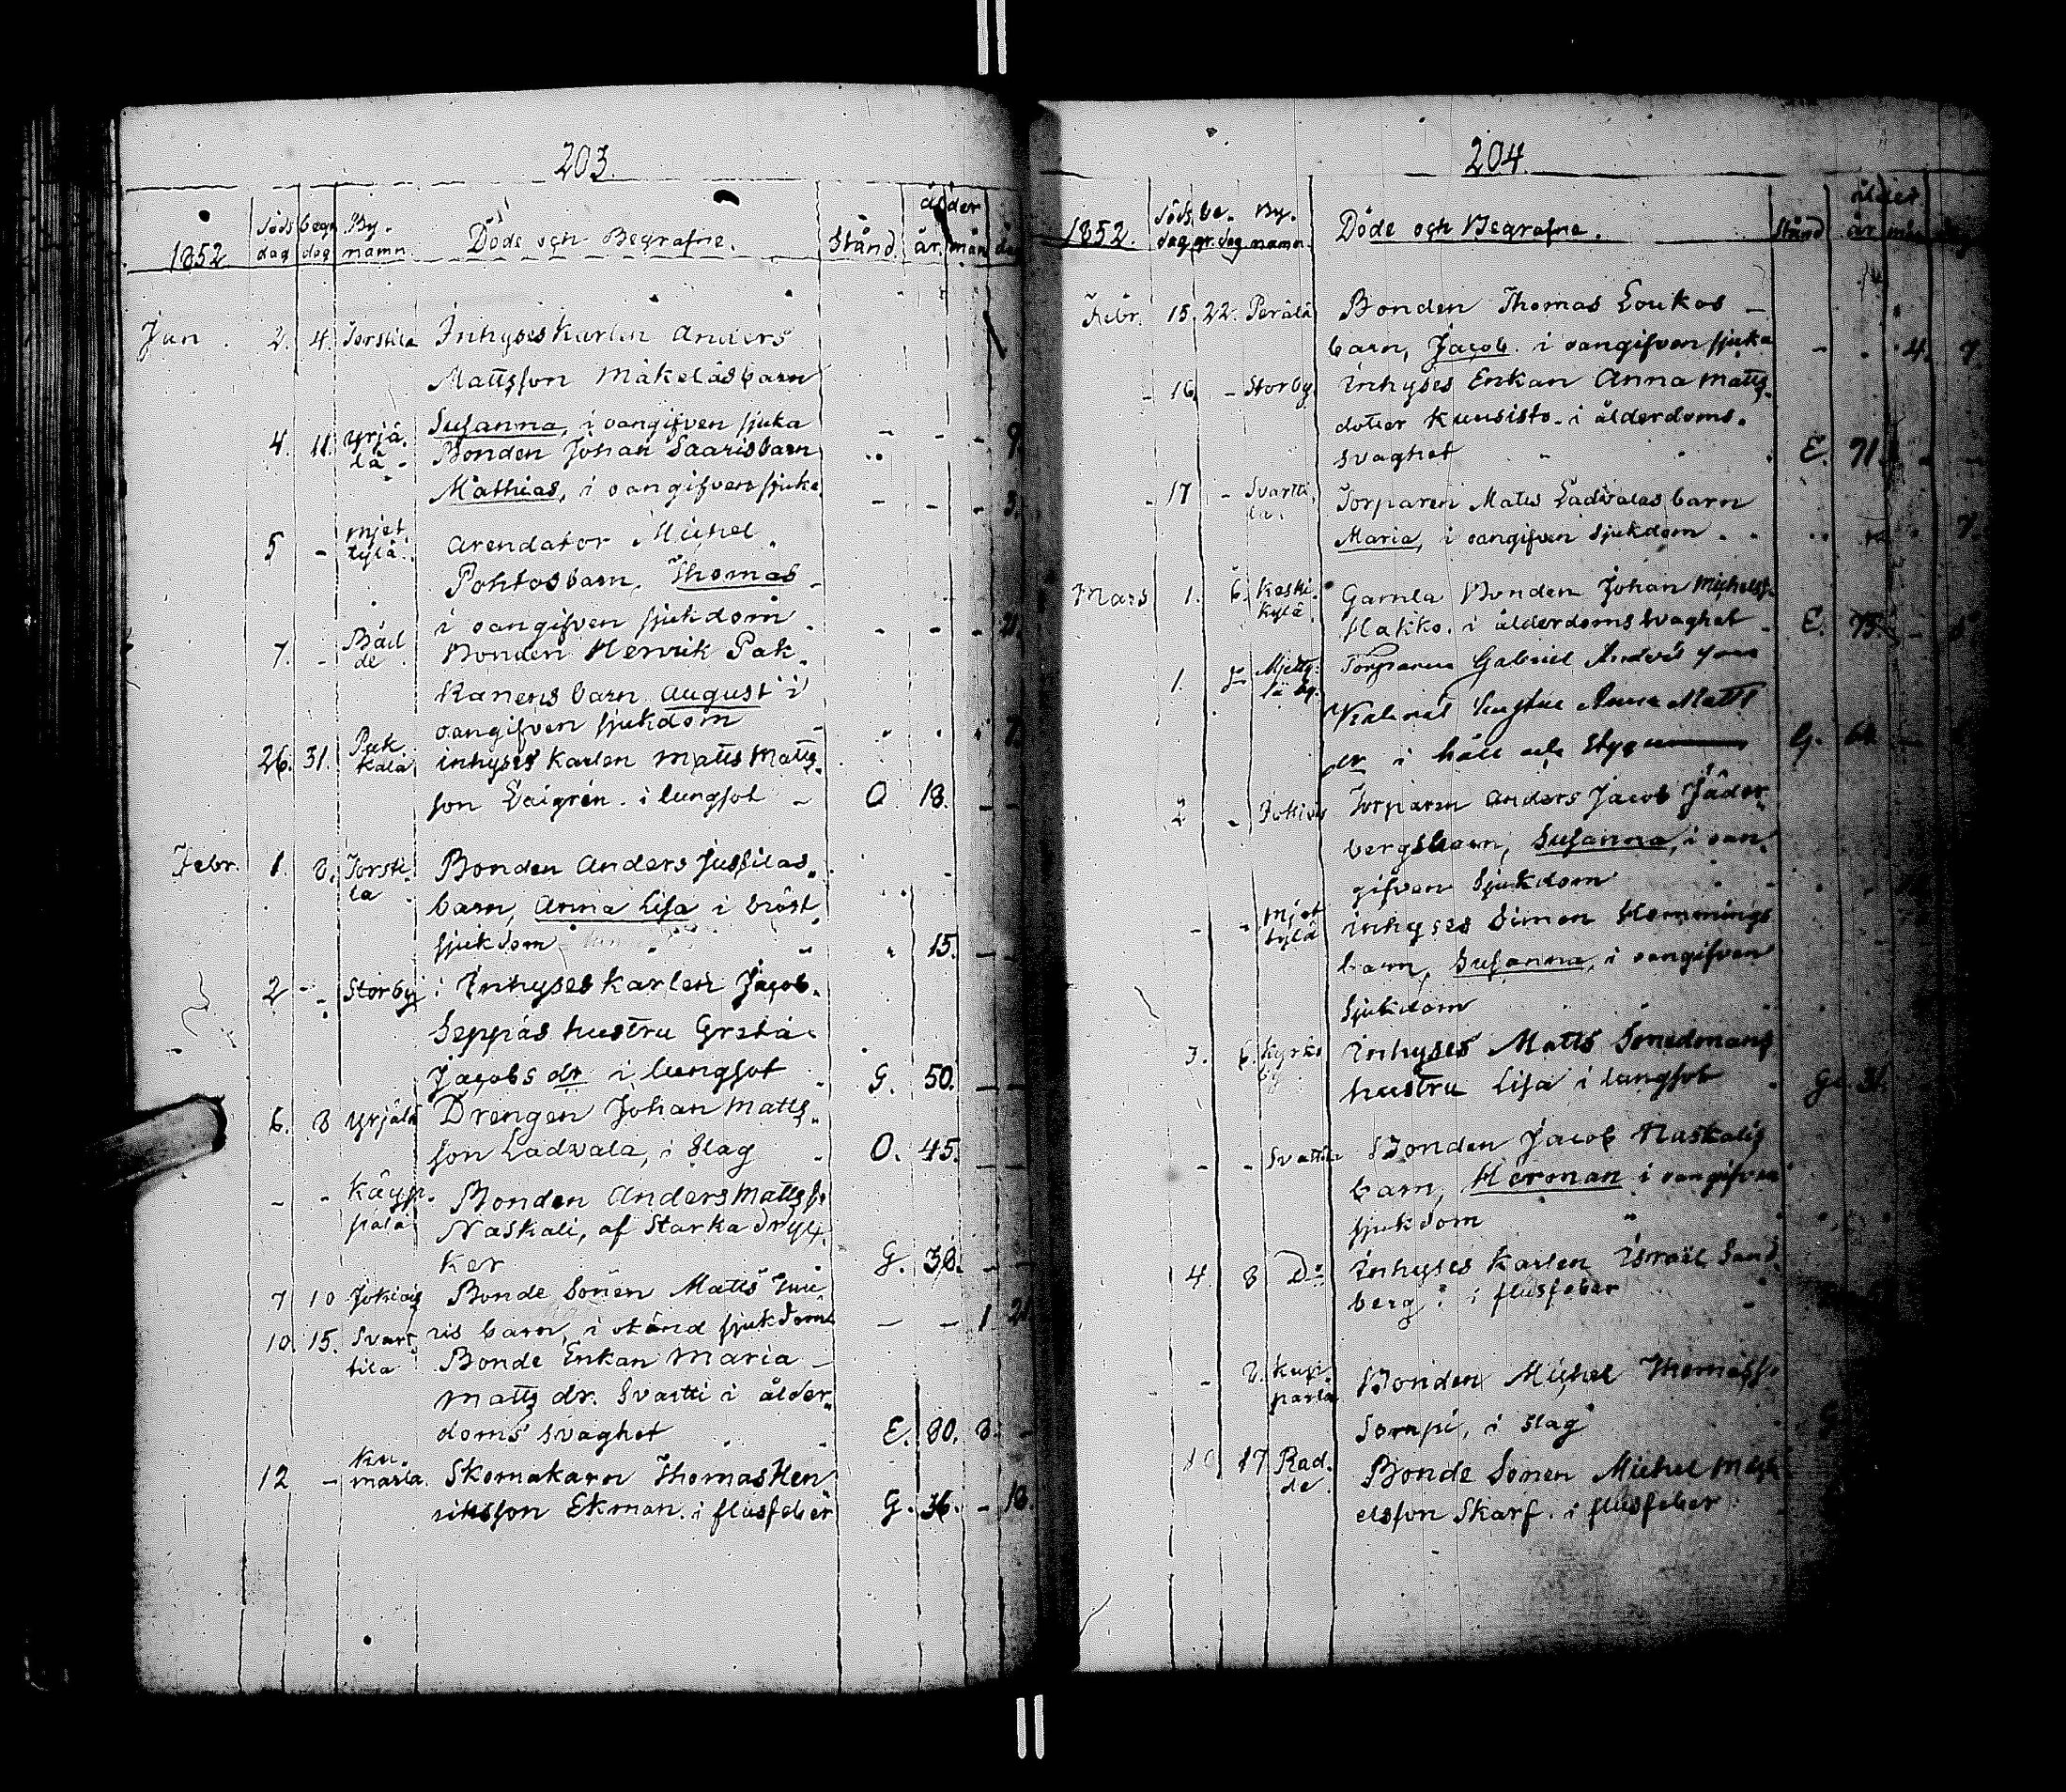 203.
1852
döds dag
begr dag
By. namn
Döde och Begrafne.
Stånd.
ålder
år. mån dag
Jan. 2. 4. Torstila Inhyses Karlen Anders
Mattsson Mäkeläs barn
Susanna, i oangifven sjuka - - - 9.
4. 11. Yrjä. Bonden Johan Saaris barn
lä. Mathias, i oangifven sjuka - - - 3.
5 - Mjet. Arendator Michel
tylä. Pohtos barn, Thomas
i oangifven sjukdom - - - 21.
7. - Räd de. Bonden Henrik Pak.
kanens barn August i
oangifven sjukdom 7.
26. 31. Puk. kala inhyses Karlen Matts Matts.
son Laigrén. i lungsot - O 18. - -
Febr. 1. 8. Torsti. Bonden Anders Jussilas
la barn, Anna Lisa i bröst
sjukdom 15. - -
2 - - Storby Inhyses karlen Jacob.
Seppäs hustru Greta
Jacobs dr i lungsot G. 50. - -
6. 8 Yrjälä Drengen Johan Matts.
son Ladvala, i Slag O. 45. - -
- - Käyp. Bonden Anders Mattss.
pälä Naskali, af Starka dryc
ker G. 38. - -
7 10 Jokiois Bonde Sonen Matts Juu
ris barn, i okänd sjukdom - - 1 21
10. 15. Svart Bonde Enkan Maria -
tila Matts dr. Svartti i ålder.
doms svaghet E. 80. 8. -
12 - Ku. marla. Skomakarn Thomas Hen
riksson Ekman. i flusfeber G. 36. - 18.
204.
1852.
döds dag
be. gr. dag
By. namn.
Döde och Begrafne.
Stånd
ålder
år mån
Febr. 15. 22. Perälä Bonden Thomas Loukas -
barn, Jacob. i oangifven sjuka - . 4. 7.
- 16. - Storby Inhyses Enkan Anna Matts.
dotter Kuusisto. i ålderdoms.
svaghet E. 71 - -
- 17 - Svartti. Torparen Matts Ladvalas barn
la. Maria, i oangifven sjukdom 7.
Mars 1. 6. Keski. Gamla Bonden Johan Michelss.
kylä Hakko. i ålderdomsvaghet - E. 75. -
1. Mjetty. Torparen Gabriel
lä by. hustru Anna Matts
dr i håll och stygn G.
2 - Jokiois Torparen Anders Jacob Jäder.
bergs barn, Susanna, i oan.
gifven Sjukdom
- - Mjet Inhyses Simon Hemmings
tylä barn, Susanna, i oangifven
Sjukdom
3. 6. Kyrko by Inhyses Matts Smedmans
hustru Lisa i lungsot G. 31.
- - Svattila Bonden Jacob Naskalis
barn, Herman i oangifven
sjukdom
4. 8 Do Inhyses Karlen Israel Sand.
berg i flusfeber
- 8. Bonden Michel Thomass.
Sorapi, i slag
17 Räd. Bonde Sonen Michel Mich
de. elsson Skarf. i flusfeber